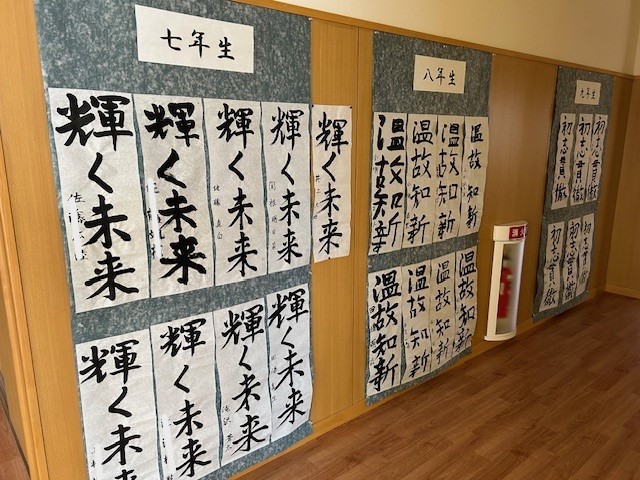 七年生
輝く未来
輝く未来
輝く未来
輝く未来
輝く未来
輝く未来
輝く未来
輝く未来
輝く未来
八年生
温故知新
温故知新
温故知新
温故知新
温故知新
温故知新
温故知新
温故知新
九年生
初志貫徹
初志貫徹
初志貫徹
初志貫徹
初志貫徹
初志貫徹